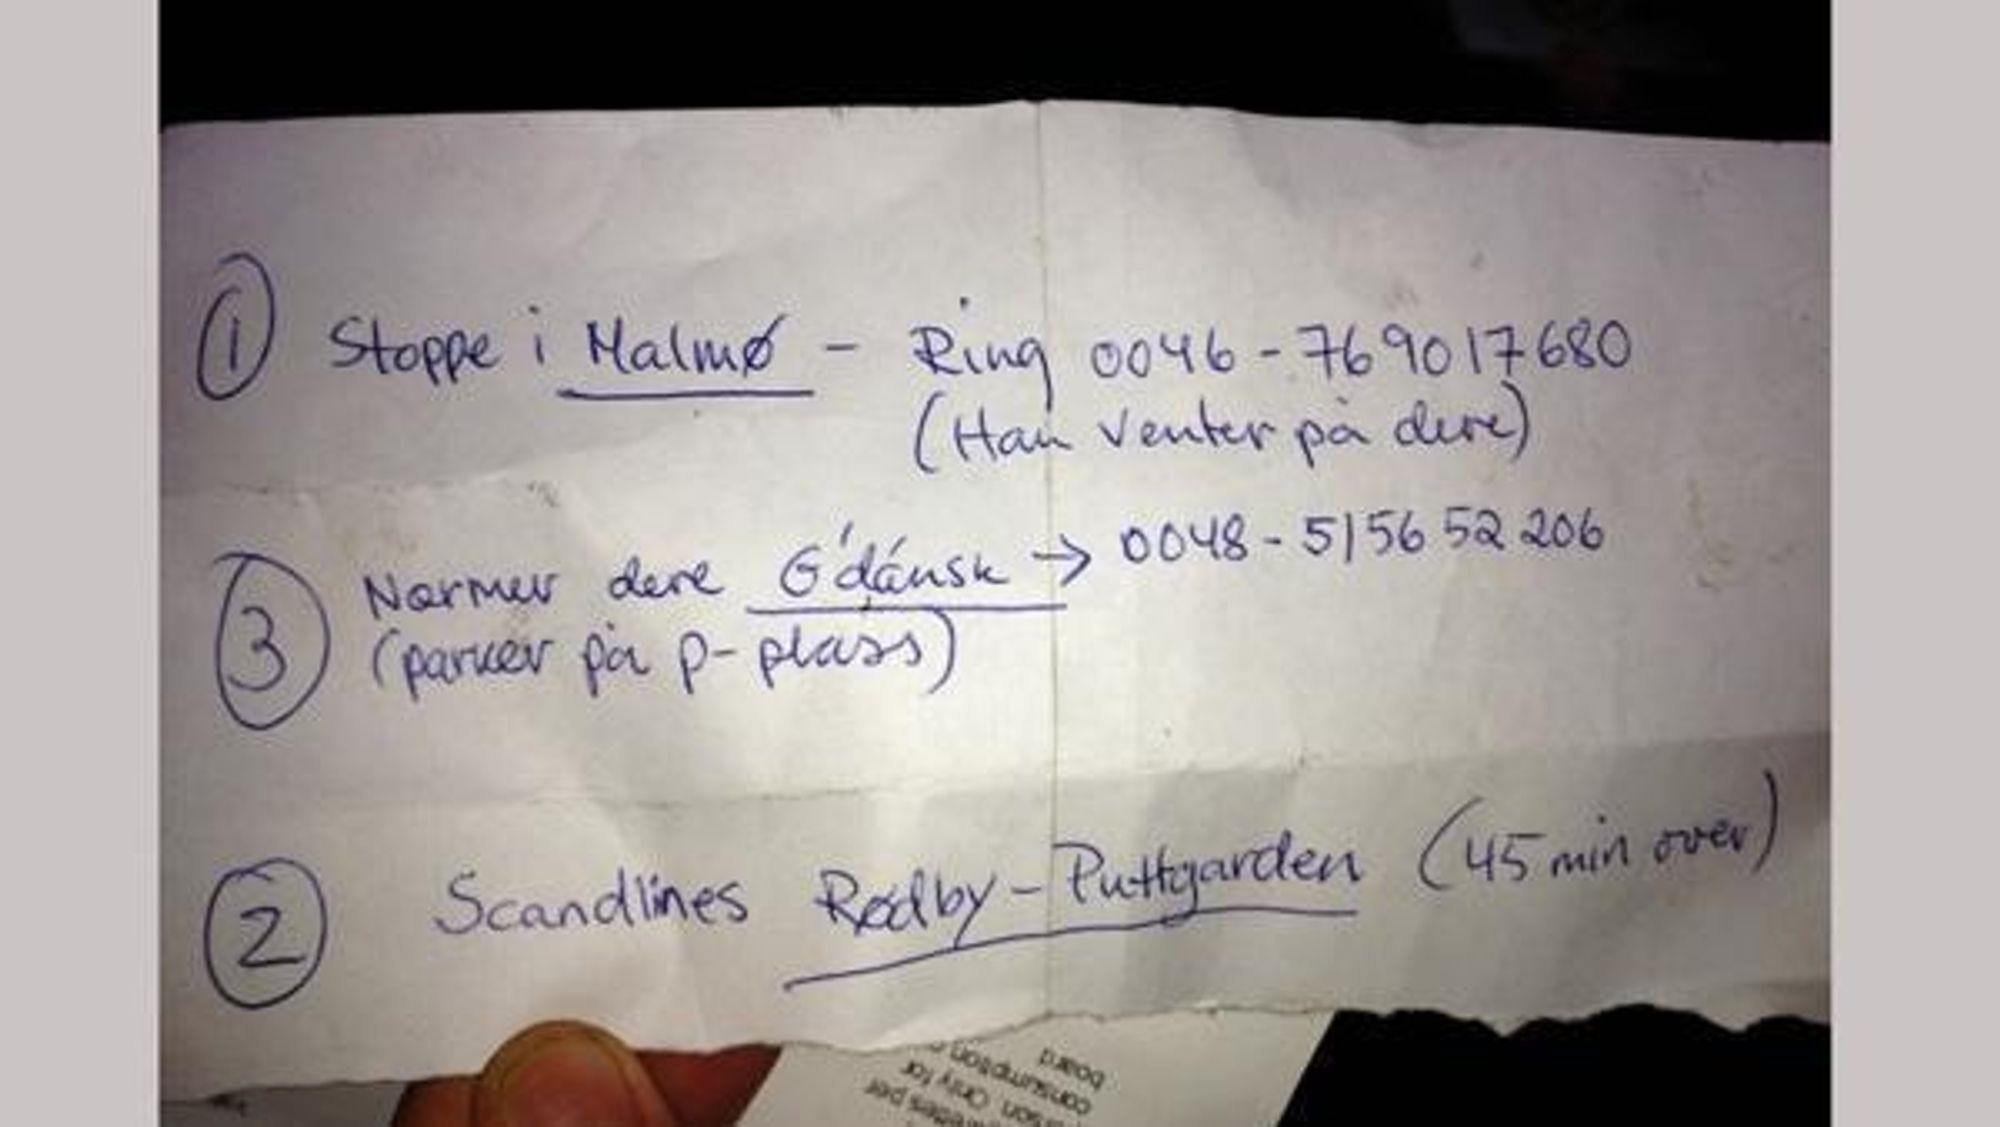 ① Stoppe i Malmø – Ring 0046-769017680
(Han venter på dere)
③ Nærmer dere G'dánsk → 0048-515652206
(parker på p-plass)
② Scandlines Rødby-Puttgarden (45 min over)
board
consumption
Only for
per